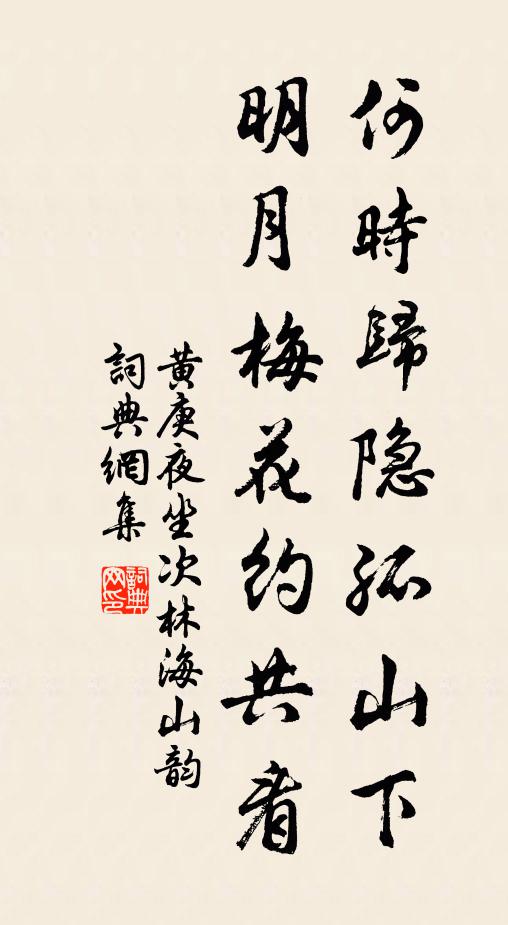 何時歸隐孤山下
明月梅花約共看
黄庚夜坐次林海山韵
詞典網集
詞典网印